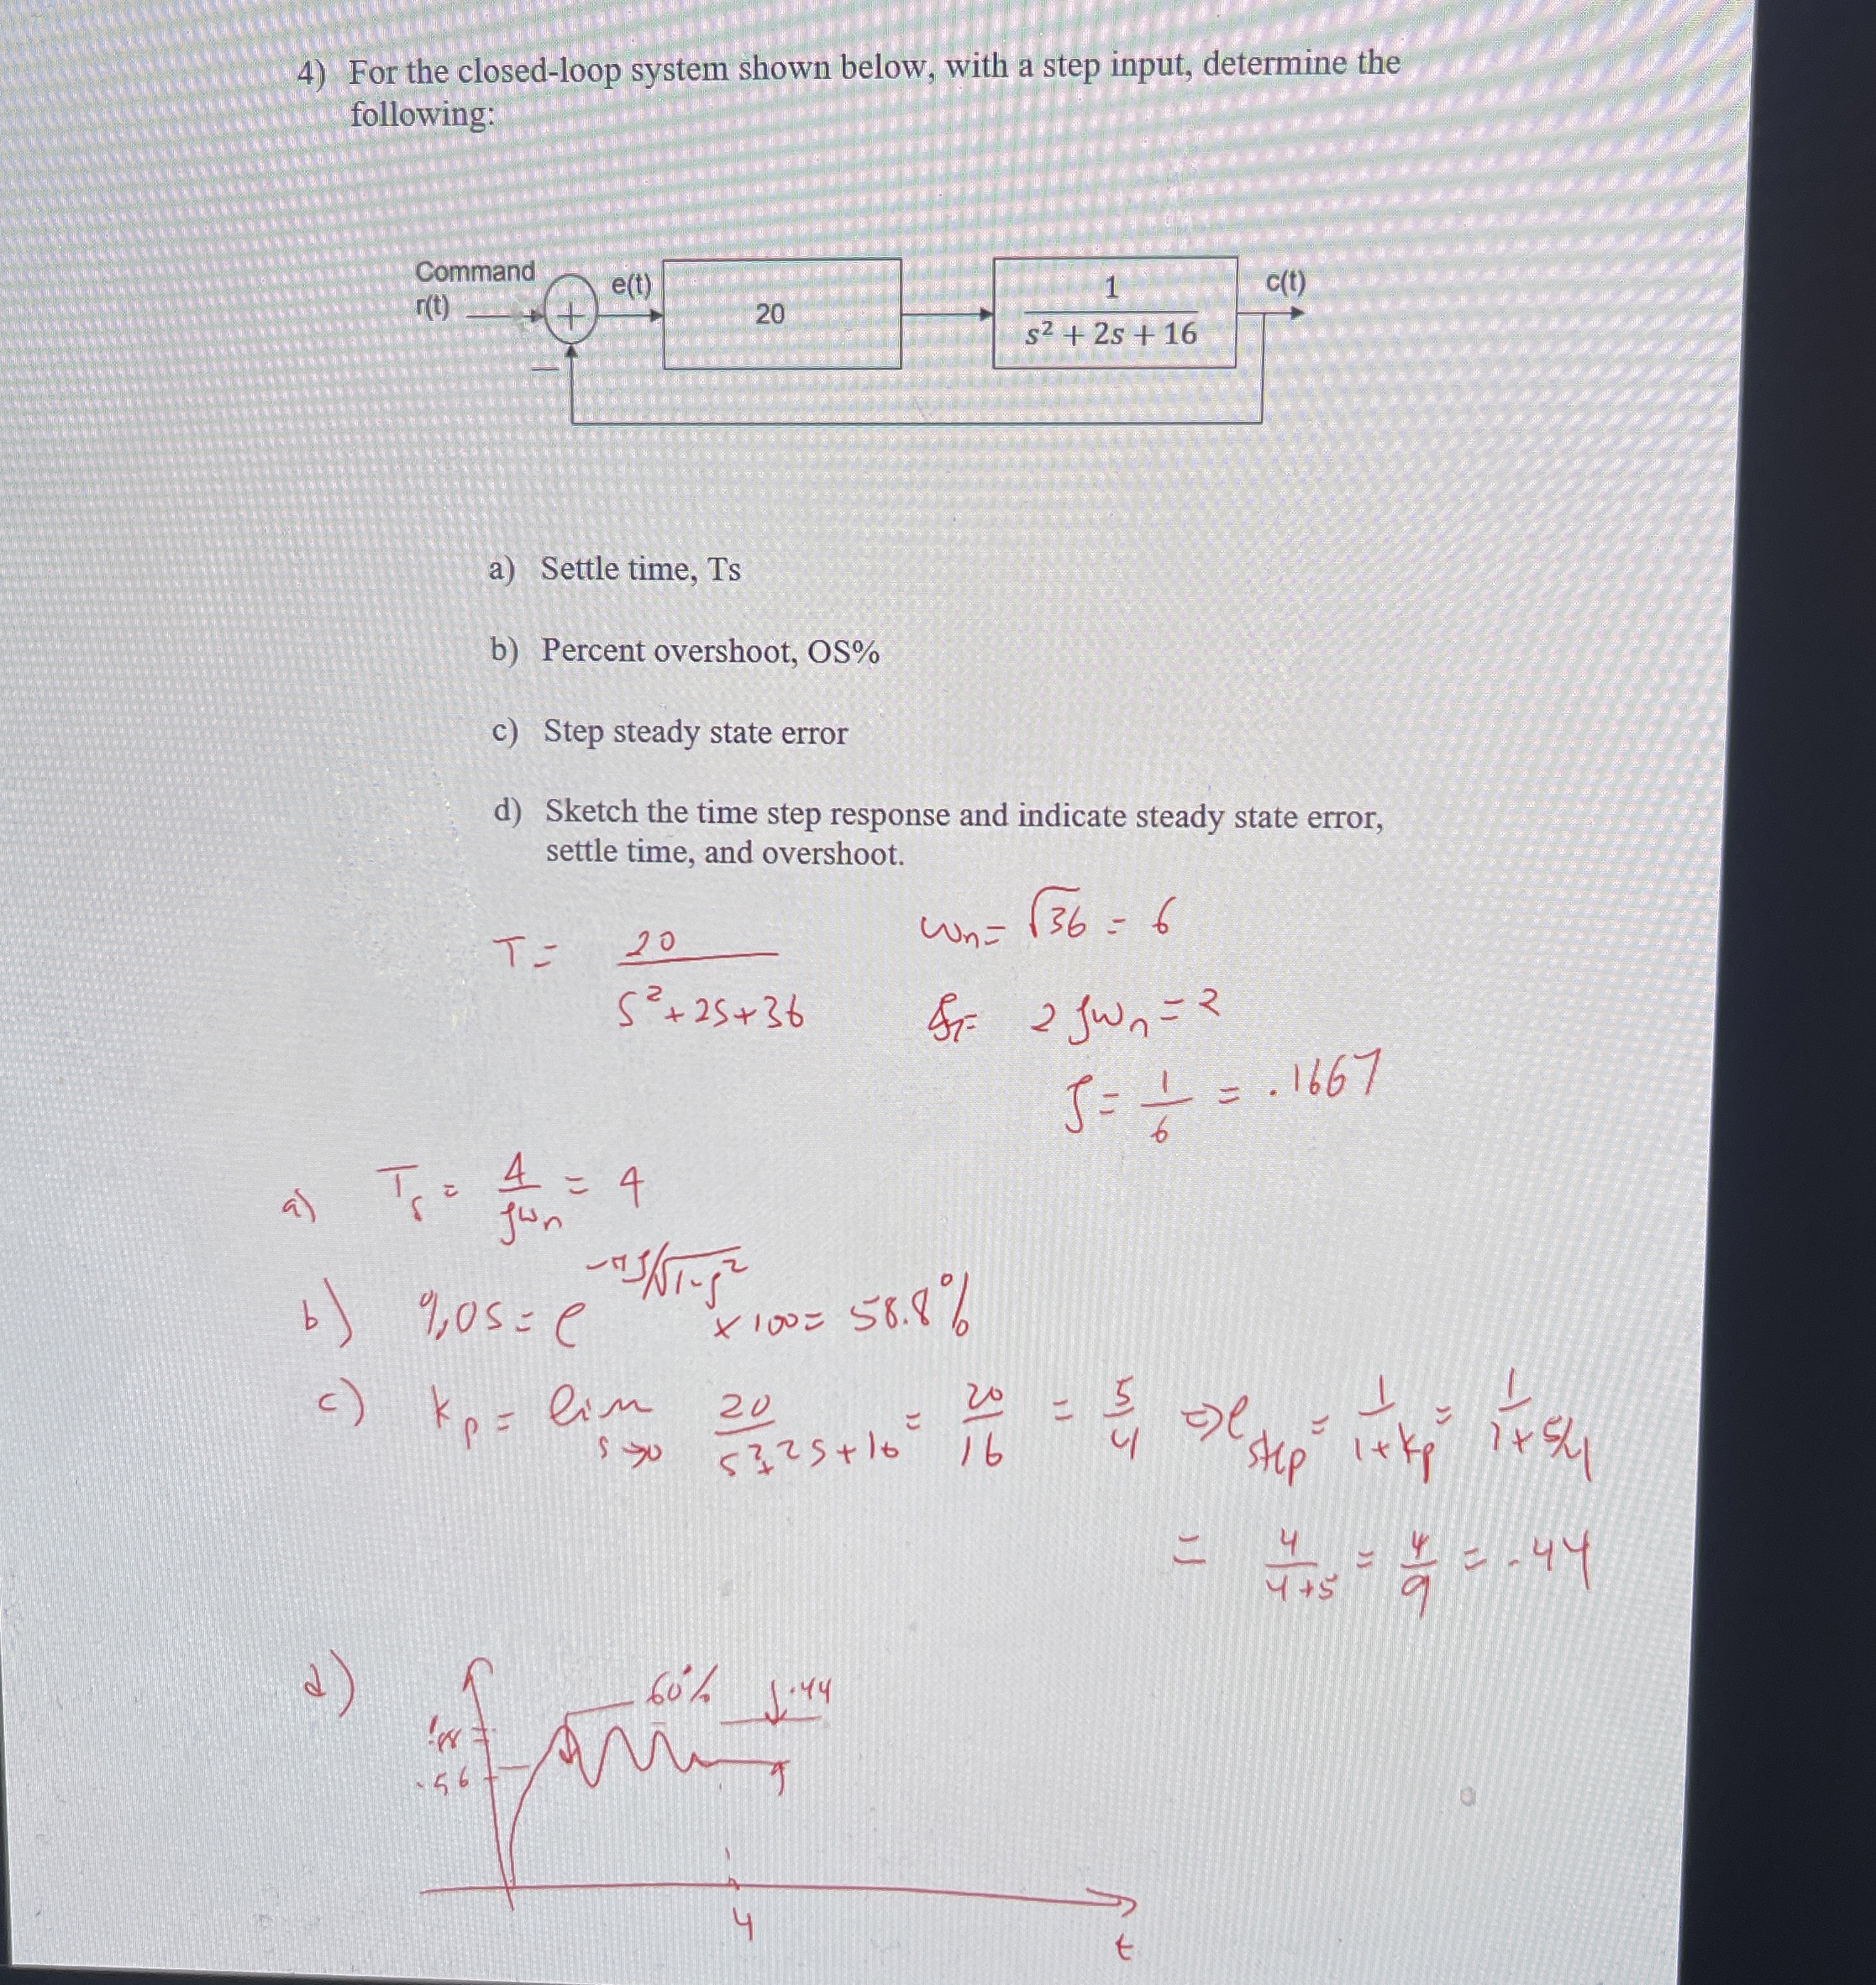 4) For the closed-loop system shown below, with a step input, determine the
following:
Command
r(t)
+
−
e(t)
20
1
s² + 2s + 16
c(t)
a) Settle time, Ts
b) Percent overshoot, OS%
c) Step steady state error
d) Sketch the time step response and indicate steady state error,
settle time, and overshoot.
T = 20 / (s² + 2s + 36)
ωn = √36 = 6
2ζωn = 2
ζ = 1/6 = .1667
a) Ts = 4/(ζωn) = 4
b) %OS = e^(−πζ/√(1−ζ²)) × 100 = 58.8%
c) kp = lim s→0 20/(s² + 2s + 16) = 20/16 = 5/4 ⇒ e step = 1/(1+kp) = 1/(1+5/4)
= 4/(4+5) = 4/9 = .44
d)
60%
.44
.56
4
t